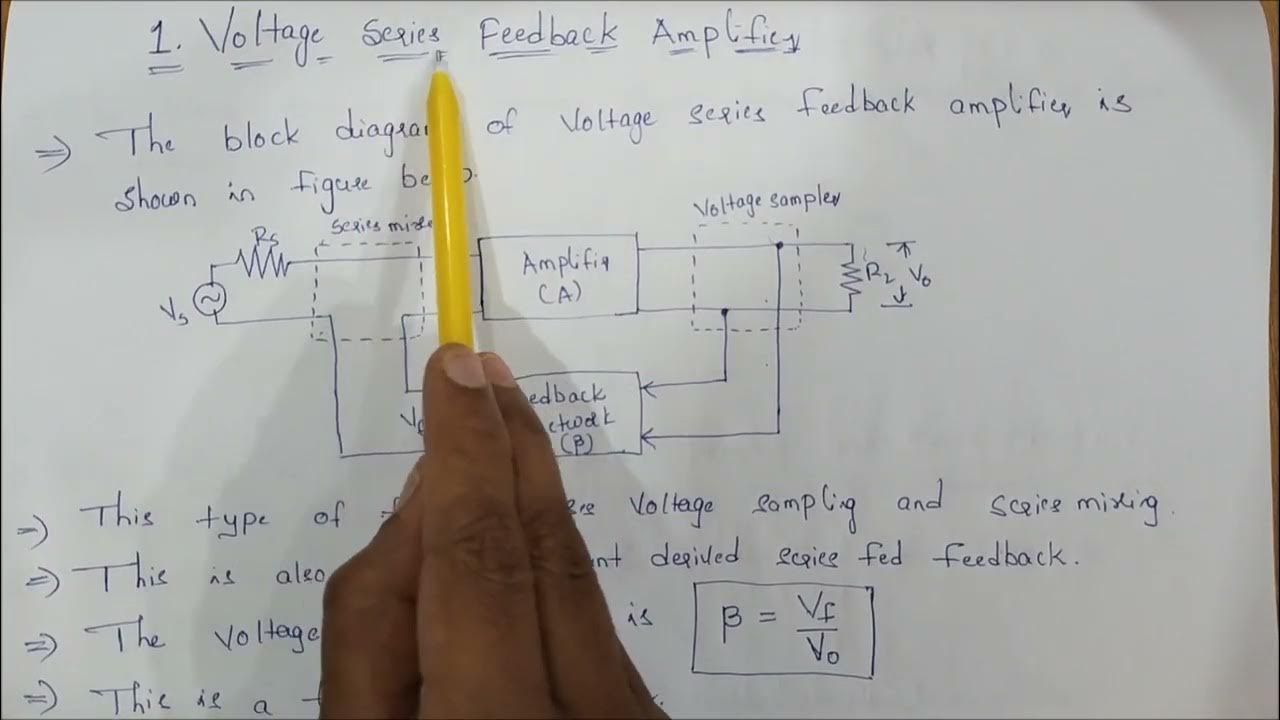 1. Voltage Series Feedback Amplifier
⇒ The block diagram of Voltage series feedback amplifier is
shown in figure
Series
Voltage sampler
Rs
Amplifier
(A)
R2
Vo
Vs
(β)
⇒ This type of Voltage sampling and series mixing.
⇒ This is also derived series fed feedback.
⇒ The Voltage is β = Vf/Vo
⇒ This is a